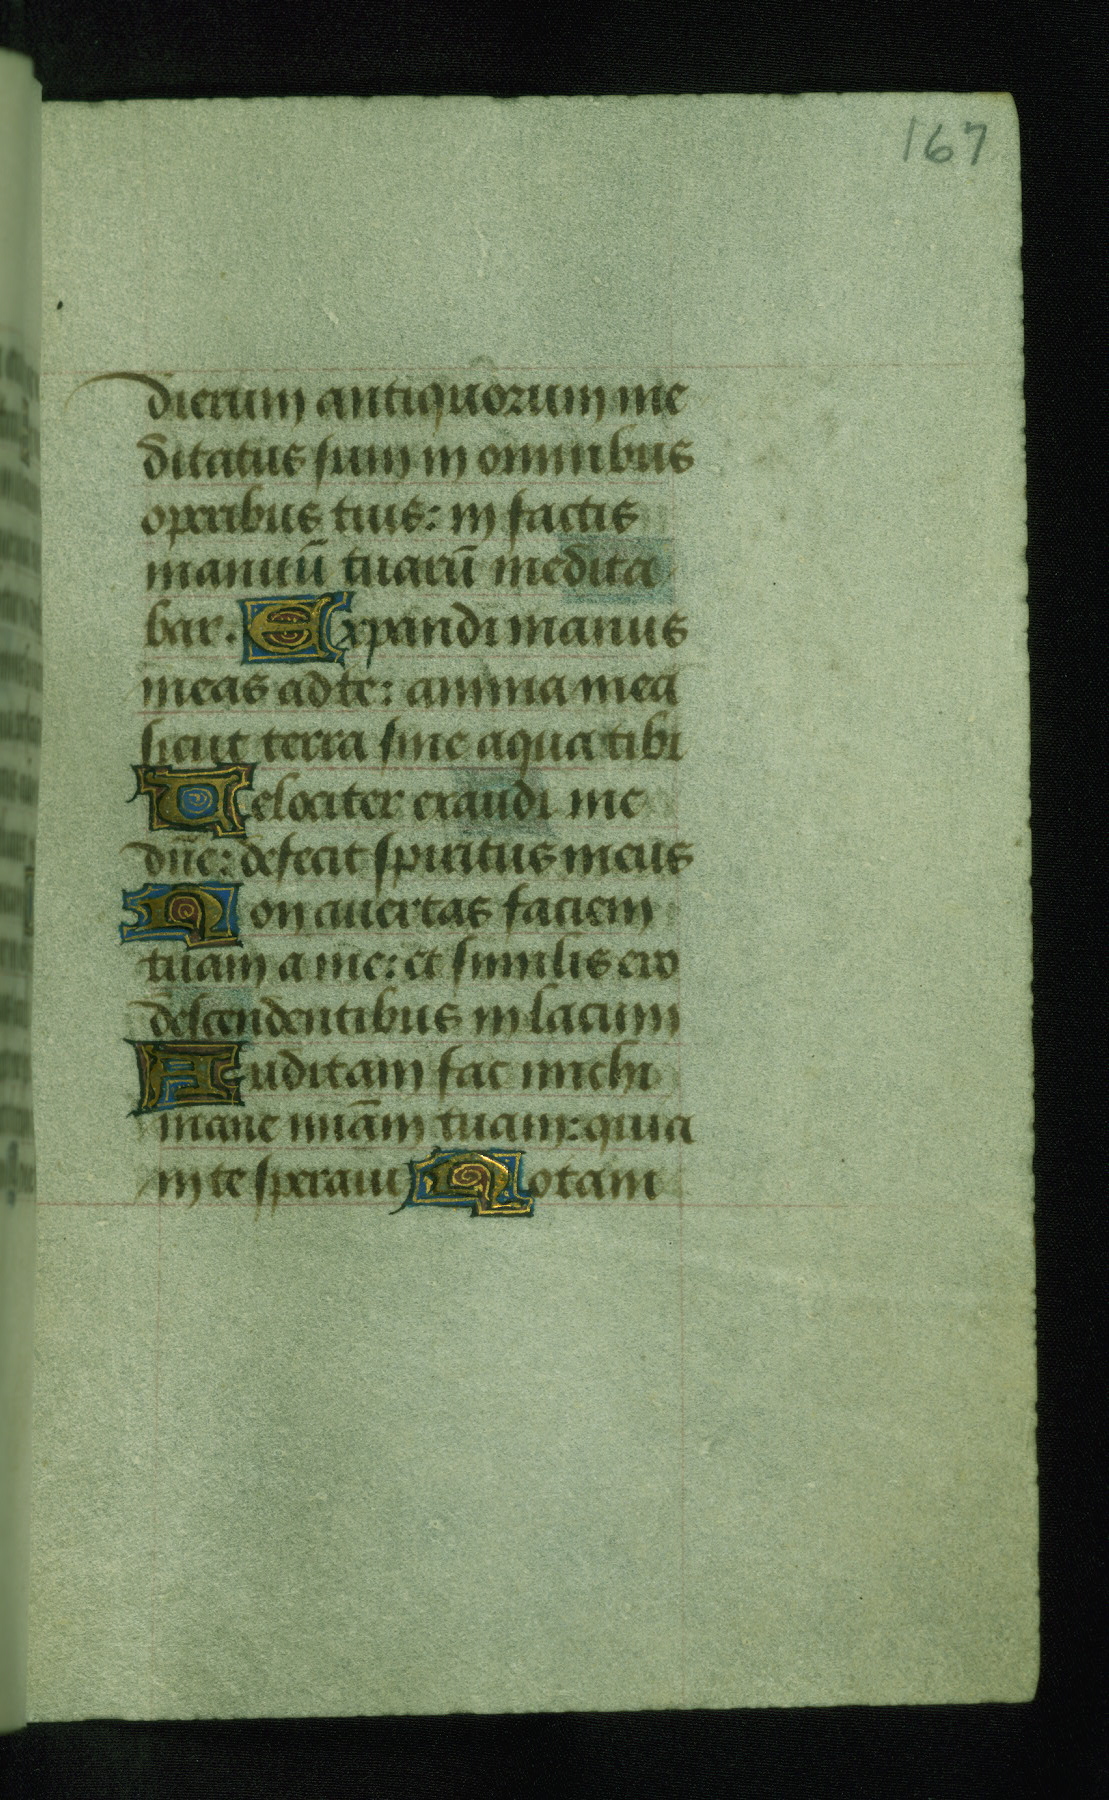 167
dierum antiquorum me
ditatus sum in omnibus
operibus tuis: in factis
manuū tuarū medita
bar. Expandi manus
meas ad te: anima mea
sicut terra sine aqua tibi
Velociter exaudi me
dn̄e: defecit spiritus meus
Non auertas faciem
tuam a me: et similis ero
descendentibus in lacum
Auditam fac michi
mane miām tuam: quia
in te speraui Notam